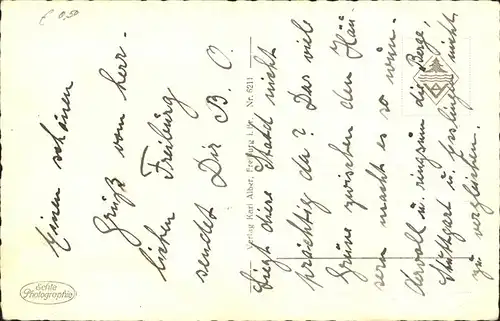 € 0,50
Einen schönen
Gruß vom herr-
lichen Freiburg
sendet Dir B. O.
Verlag Karl Alber, Freiburg i. Br. Nr. 6211
Liegt diese Stadt nicht
prächtig da? Das viele
Grüne zwischen den Häu-
sern macht es so wun-
dervoll u. ringsum die Berge,
Stuttgart u. Esslingen nicht
zu vergleichen.
Echte
Photographie